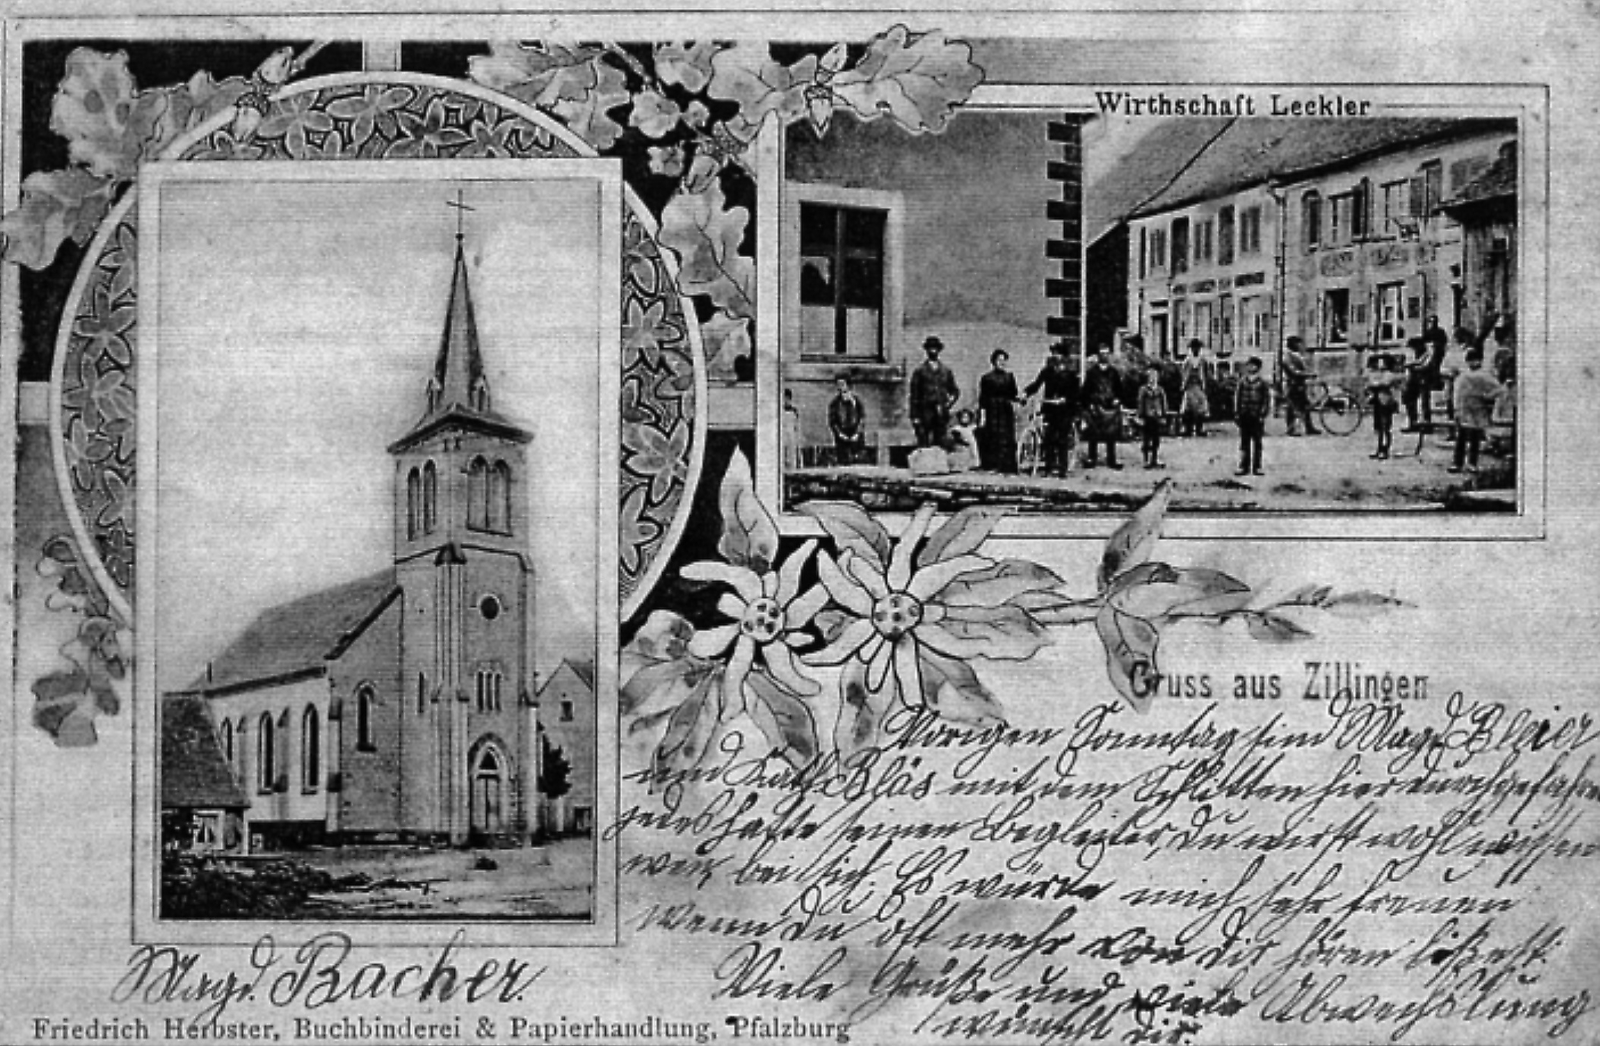 Wirthschaft Leckler
Gruss aus Zillingen
Vorigen Sonntag sind Magd. Bleier
und Kath. Bläs mit dem Schlitten hier durchgefahren
jedes hatte seinen Begleiter, Du wirst wohl wissen
wer, bei sich. Es würde mich sehr freuen
wenn Du oft mehr von Dir hören ließest.
Viele Grüße und viele Abwechslung
wünscht Dir
Magd. Bacher.
Friedrich Herbster, Buchbinderei & Papierhandlung, Pfalzburg